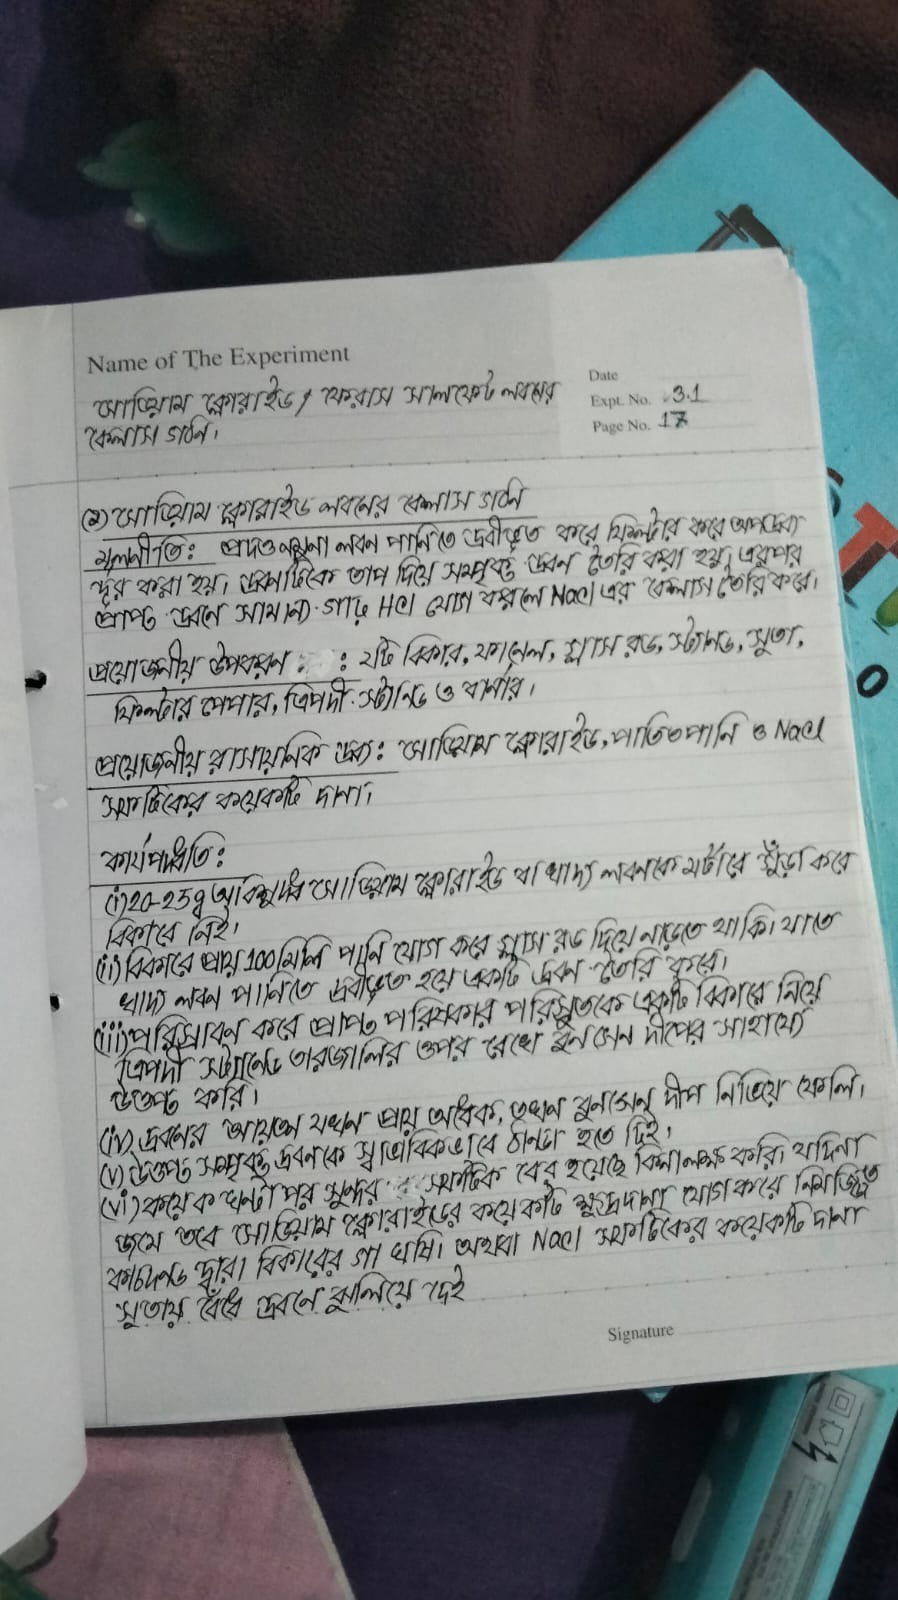 Name of The Experiment
সোডিয়াম ক্লোরাইড/ ফেরাস সালফেট লবনের
কেলাস গঠন।
Date
Expt. No. 3.1
Page No. 17
সোডিয়াম ক্লোরাইড লবনের কেলাস গঠন
মূলনীতি: প্রদত্ত নমুনা লবন পানিতে দ্রবীভূত করে ফিল্টার করে অপদ্রব্য
দূর করা হয়। দ্রবণটিকে তাপ দিয়ে সম্পৃক্ত দ্রবণ তৈরি করা হয়, এরপর
প্রাপ্ত দ্রবনে সামান্য গাঢ় HCl যোগ করলে NaCl এর কেলাস তৈরি করে।
প্রয়োজনীয় উপকরণ : : ২টি বিকার, ফানেল, গ্লাস রড, স্ট্যান্ড, সুতা,
ফিল্টার পেপার, ত্রিপদী স্ট্যান্ড ও বার্নার।
প্রয়োজনীয় রাসায়নিক দ্রব্য: সোডিয়াম ক্লোরাইড, পাতিত পানি ও NaCl
স্ফটিকের কয়েকটি দানা।
কার্যপদ্ধতি:
(i) 20-25g অবিশুদ্ধ সোডিয়াম ক্লোরাইড বা খাদ্য লবনকে মর্টারে গুঁড়া করে
বিকারে নিই।
(ii) বিকারে প্রায় 100 মিলি পানি যোগ করে গ্লাস রড দিয়ে নাড়তে থাকি। যাতে
খাদ্য লবন পানিতে দ্রবীভূত হয়ে একটি দ্রবণ তৈরি করে।
(iii) পরিস্রাবণ করে প্রাপ্ত পরিষ্কার পরিস্রুতকে একটি বিকারে নিয়ে
ত্রিপদী স্ট্যান্ডে তারজালির ওপর রেখে বুনসেন দীপের সাহায্যে
উত্তপ্ত করি।
(iv) দ্রবনের আয়তন যখন প্রায় অর্ধেক, তখন বুনসেন দীপ নিভিয়ে ফেলি।
(v) উত্তপ্ত সম্পৃক্ত দ্রবনকে স্বাভাবিকভাবে ঠান্ডা হতে দিই।
(vi) কয়েক ঘন্টা পর সুন্দর স্ফটিক বের হয়েছে কিনা লক্ষ করি। যদি না
জমে তবে সোডিয়াম ক্লোরাইডের কয়েকটি ক্ষুদ্র দানা যোগ করে নিমজ্জিত
কাচদণ্ড দ্বারা বিকারের গা ঘষি। অথবা NaCl স্ফটিকের কয়েকটি দানা
সুতায় বেঁধে দ্রবনে ঝুলিয়ে দেই
Signature